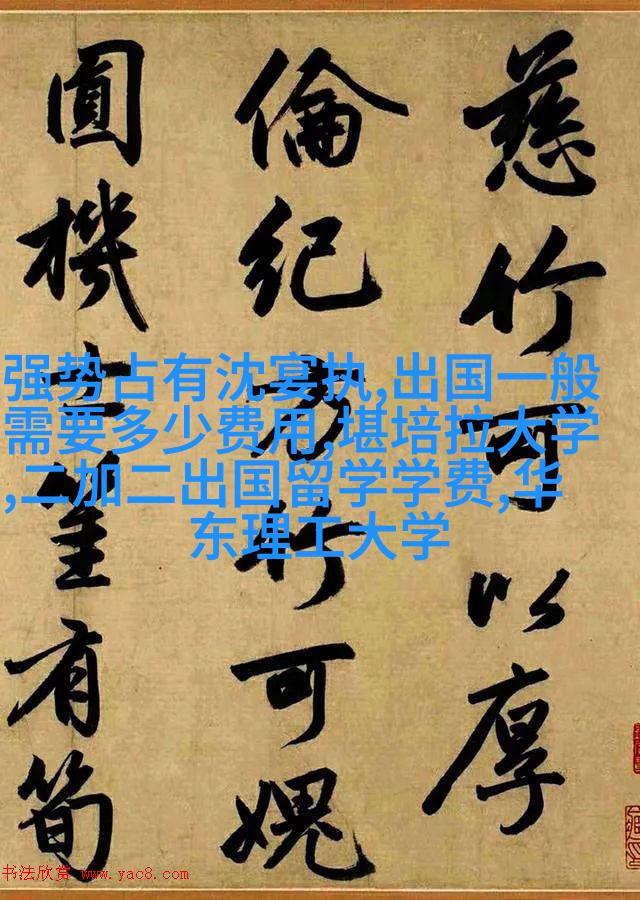 慈竹可以厚
倫紀方竹可媿
圓機士筀有筍
强势占有沈宴执,出国一般
需要多少费用,堪培拉大学
,二加二出国留学学费,华
东理工大学
书法欣赏 www.yac8.com